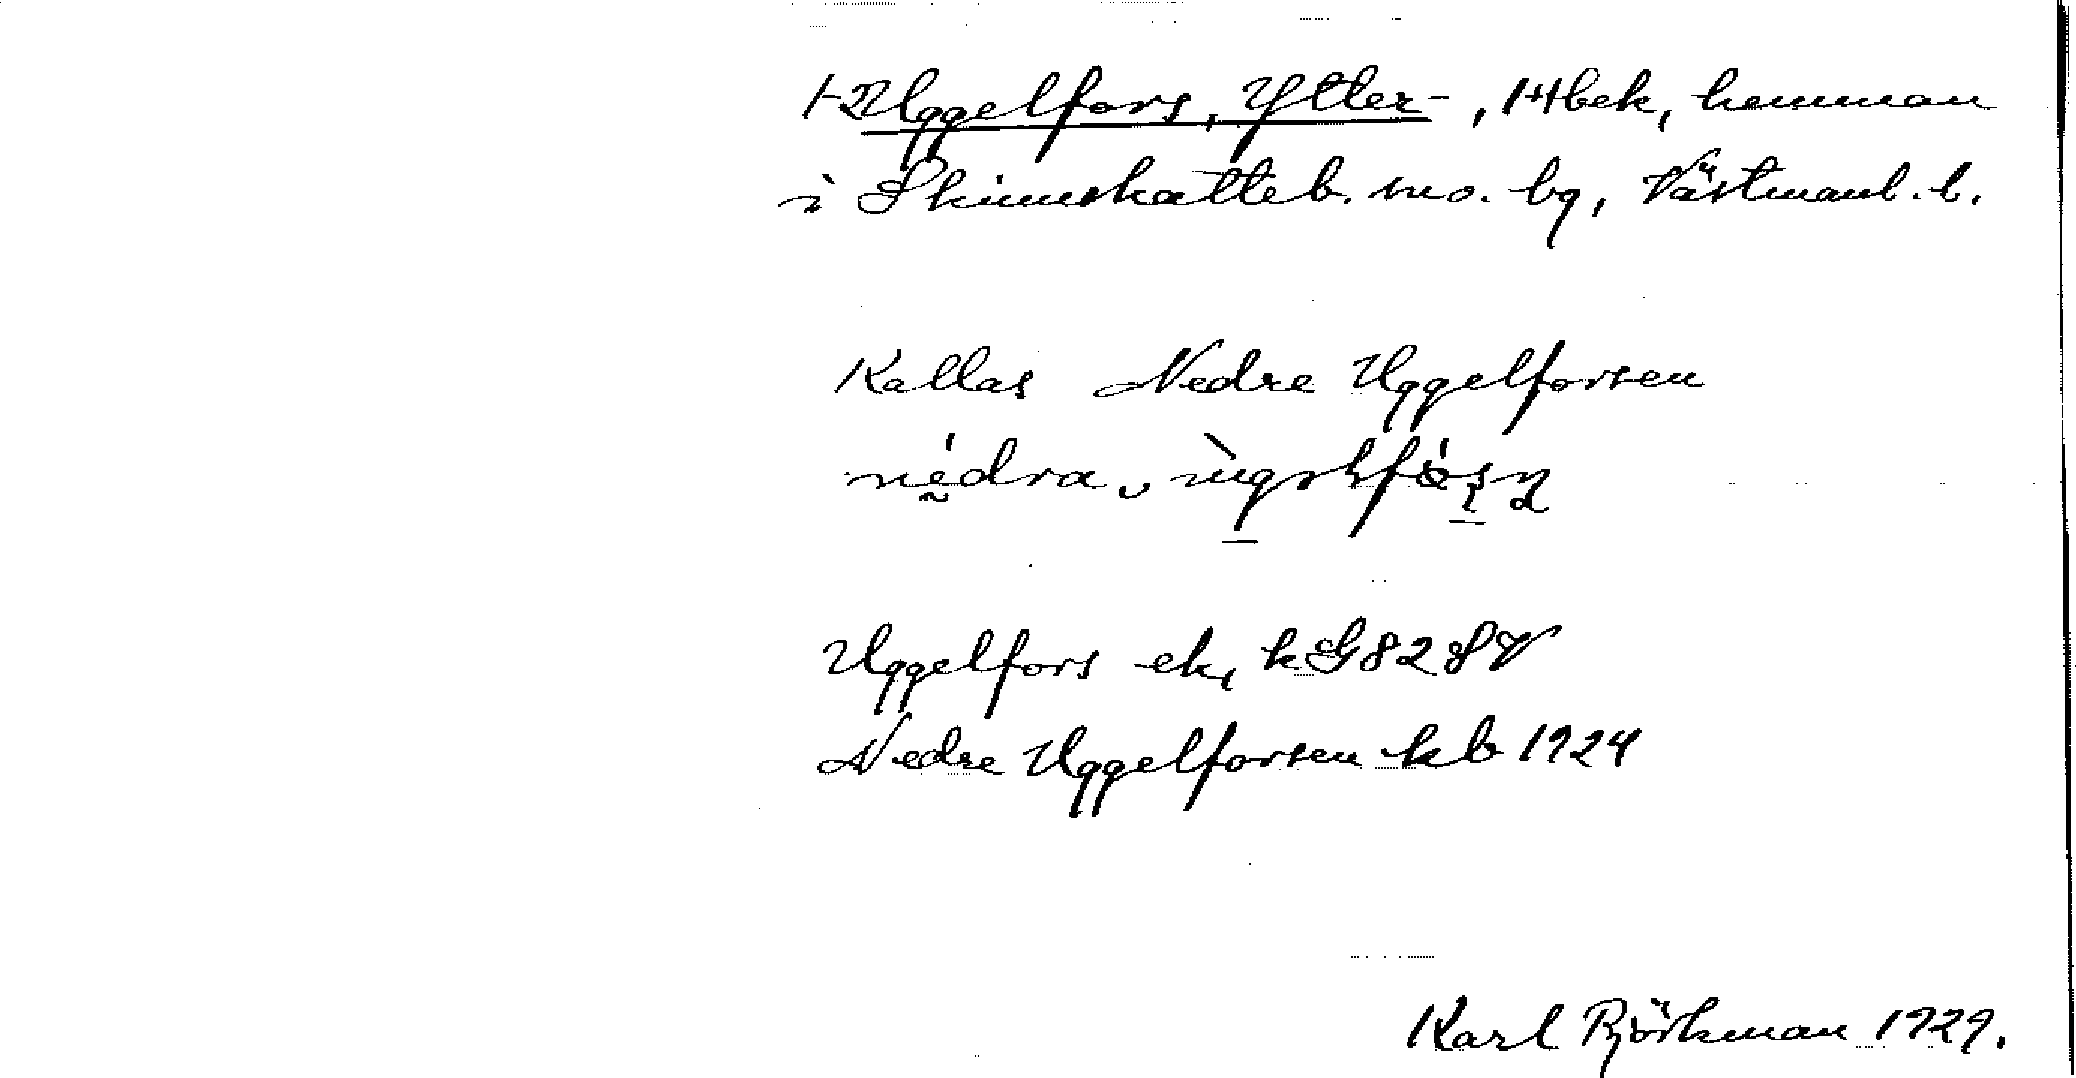 1-2 Uggelfors, Ytter-, 14bek, hemman
i Skinnskatteb. sn o. bg, Västmanl. l.
Kallas Nedre Uggelforsen
Uggelfors ek, kG82SV
Nedre Uggelforsen kb 1924
Karl Björkman 1929.